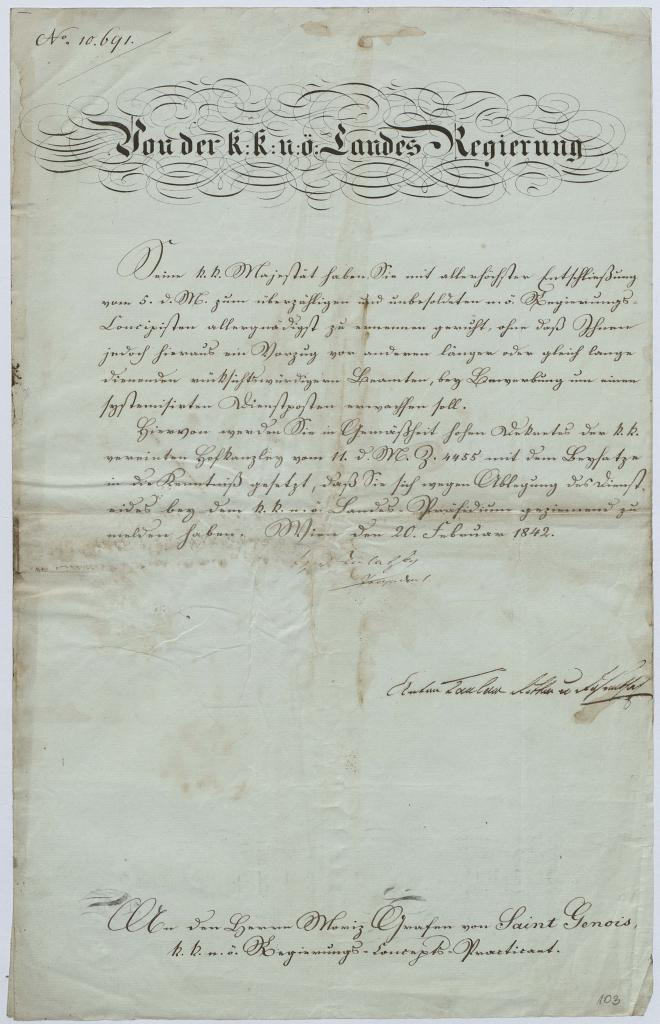 No. 10.691.
Von der k: k: n: ö: Landes Regierung
Seine k. k. Majestät haben Sie mit allerhöchster Entschließung
vom 5. d. M. zum überzähligen und unbesoldeten n. ö. Regierungs-
Concipisten allergnädigst zu ernennen geruht, ohne daß Ihnen
jedoch hieraus ein Vorzug vor anderen länger oder gleich lange
dienenden rücksichtswürdigern Beamten, bey Bewerbung um einen
systemisirten Dienstposten erwachsen soll.
Hiervon werden Sie in Gemäßheit hohen Dekretes der k. k.
vereinten Hofkanzley vom 11. d. M. Z. 4455 mit dem Beysatze
in die Kenntniß gesetzt, daß Sie sich wegen Ablegung des Dienst-
eides bey dem k. k. n. ö. Landes-Präsidium geziemend zu
melden haben. Wien den 20. Februar 1842.
Anton
An den Herrn Moriz Grafen von Saint Genois,
k. k. n. ö. Regierungs-Concepts-Practicant.
103